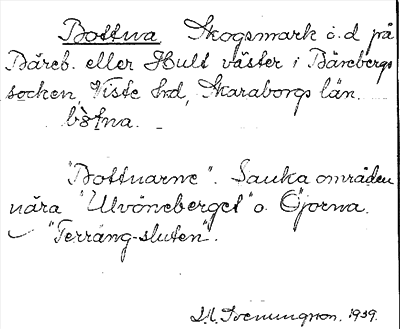 Bottna Skogsmark ö. d på
Bäreb. eller Hult väster i Bärebergs
socken, Viste hd, Skaraborgs län.
"Bottnarne". Sanka områden
nära "Ulvöneberget" o. Öjorna.
"Terräng-sluten".
1939.